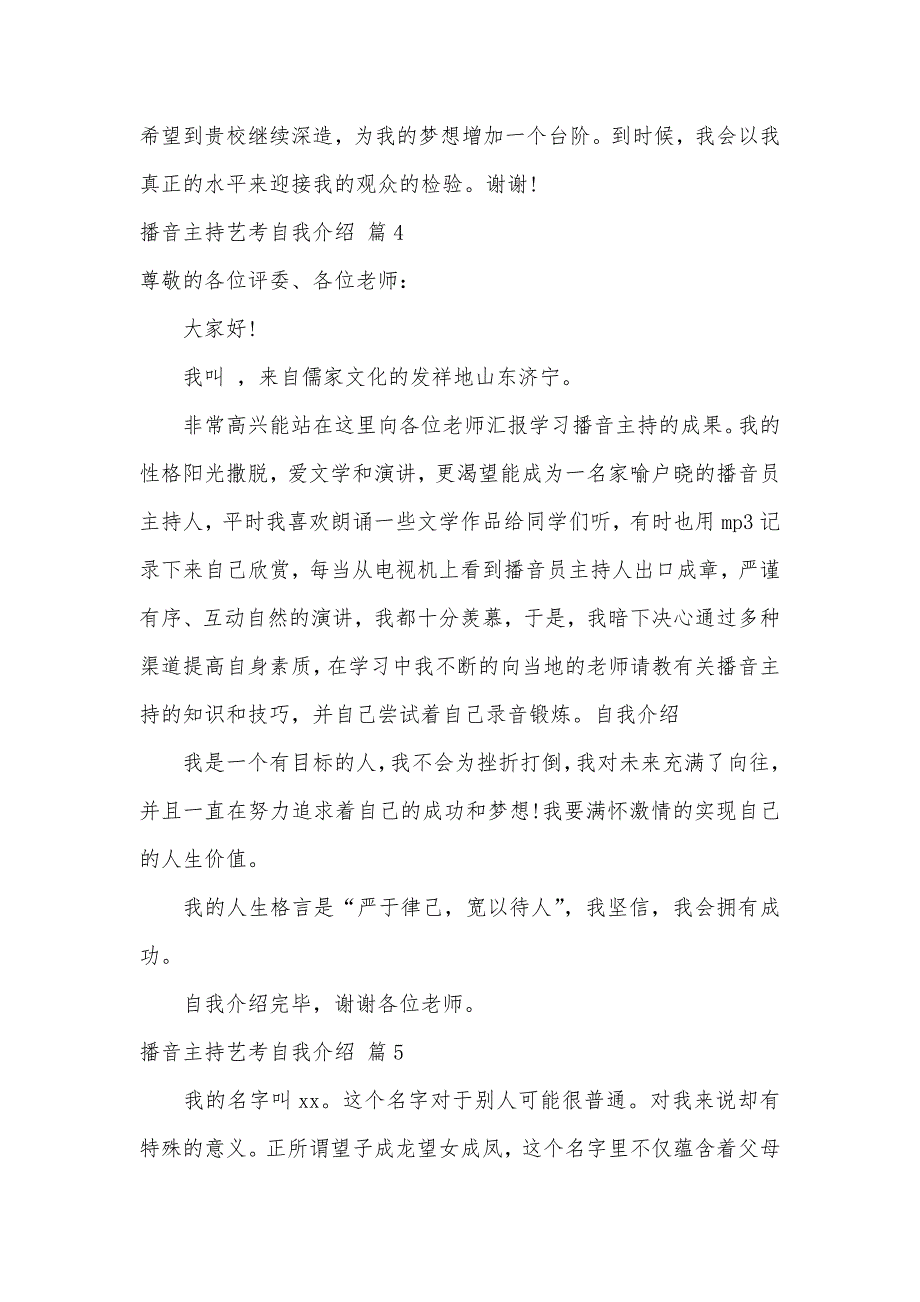 希望到贵校继续深造，为我的梦想增加一个台阶。到时候，我会以我
真正的水平来迎接我的观众的检验。谢谢!
播音主持艺考自我介绍 篇4
尊敬的各位评委、各位老师：
大家好!
我叫 ，来自儒家文化的发祥地山东济宁。
非常高兴能站在这里向各位老师汇报学习播音主持的成果。我的
性格阳光撒脱，爱文学和演讲，更渴望能成为一名家喻户晓的播音员
主持人，平时我喜欢朗诵一些文学作品给同学们听，有时也用mp3记
录下来自己欣赏，每当从电视机上看到播音员主持人出口成章，严谨
有序、互动自然的演讲，我都十分羡慕，于是，我暗下决心通过多种
渠道提高自身素质，在学习中我不断的向当地的老师请教有关播音主
持的知识和技巧，并自己尝试着自己录音锻炼。自我介绍
我是一个有目标的人，我不会为挫折打倒，我对未来充满了向往，
并且一直在努力追求着自己的成功和梦想!我要满怀激情的实现自己
的人生价值。
我的人生格言是“严于律己，宽以待人”，我坚信，我会拥有成
功。
自我介绍完毕，谢谢各位老师。
播音主持艺考自我介绍 篇5
我的名字叫xx。这个名字对于别人可能很普通。对我来说却有
特殊的意义。正所谓望子成龙望女成凤，这个名字里不仅蕴含着父母